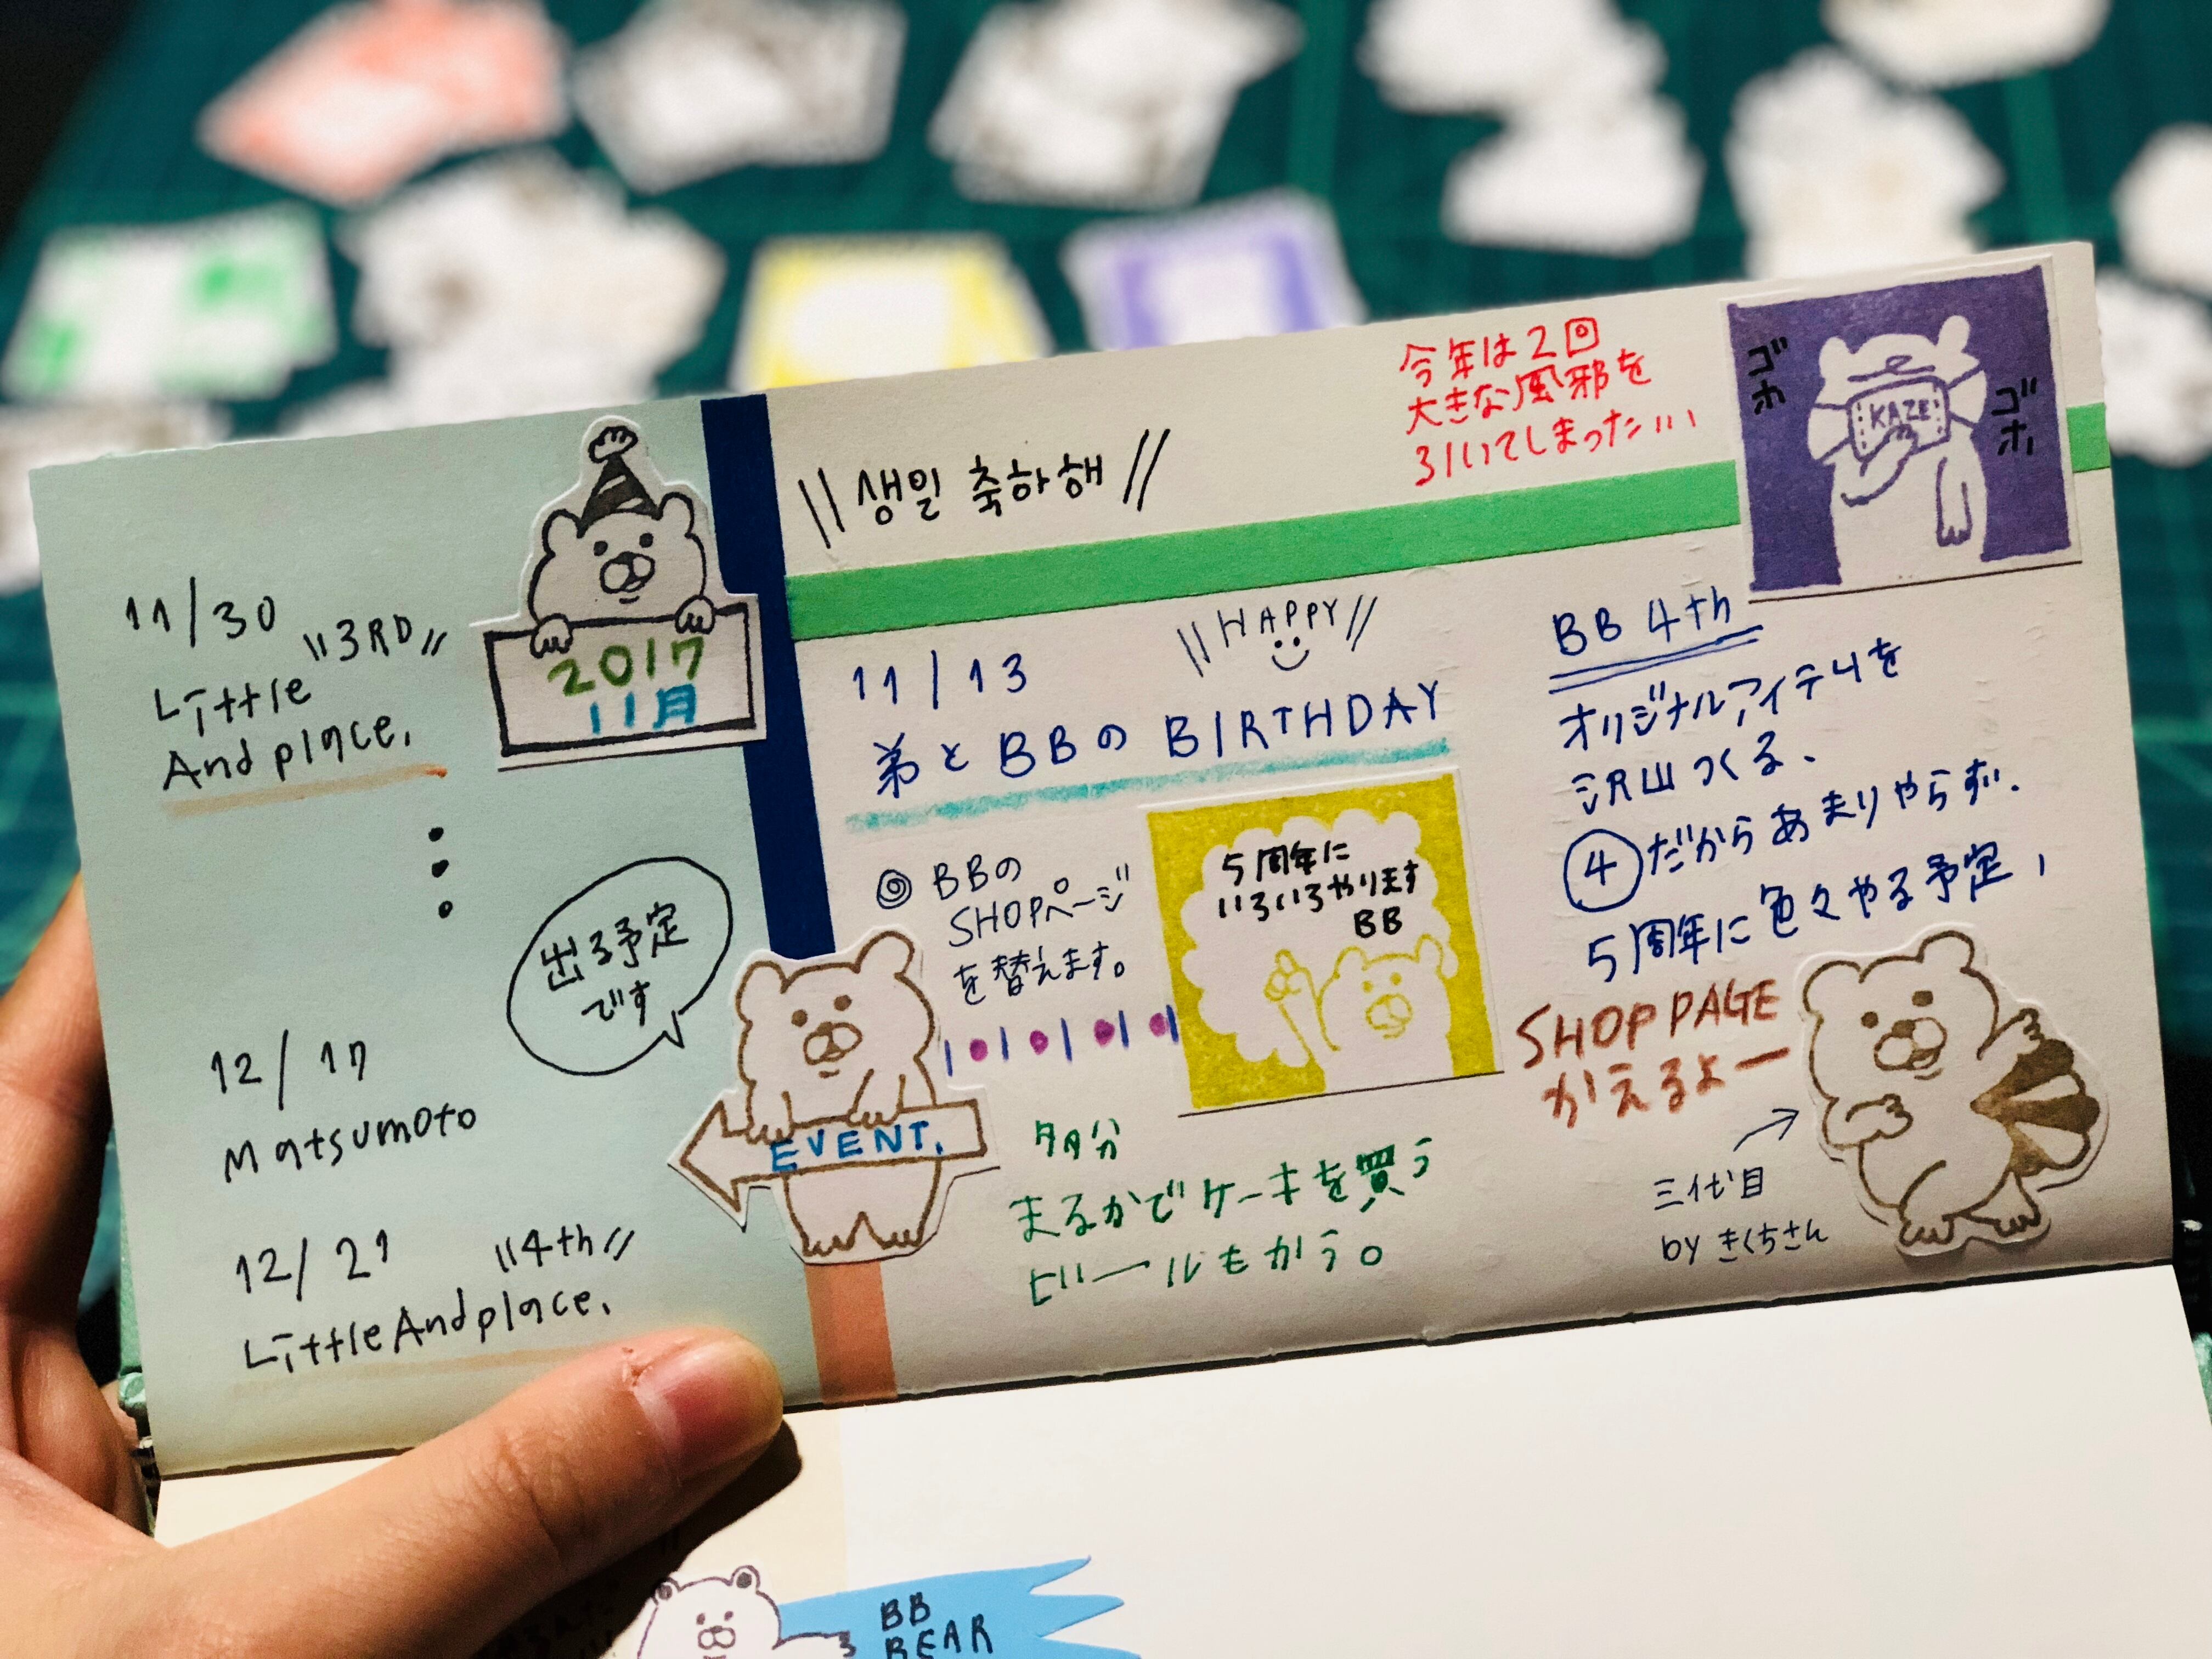 11/30
"3RD"
Little
And place.
2017
11月
出る予定
です
12/17
Matsumoto
12/21
"4th"
Little And place.
EVENT.
생일 축하해
今年は2回
大きな風邪を
引いてしまった...
ゴホ
KAZE
ゴホ
11/13
HAPPY
弟とBBの BIRTHDAY
◎ BBの
SHOPページ
を替えます。
5周年に
いろいろやります
BB
多分
まるかでケーキを買う
ビールもかう。
BB 4th
オリジナルアイテムを
沢山つくる、
④だからあまりやらず.
5周年に色々やる予定,
SHOP PAGE
かえるよー
三代目
by きくちさん
BB
BEAR